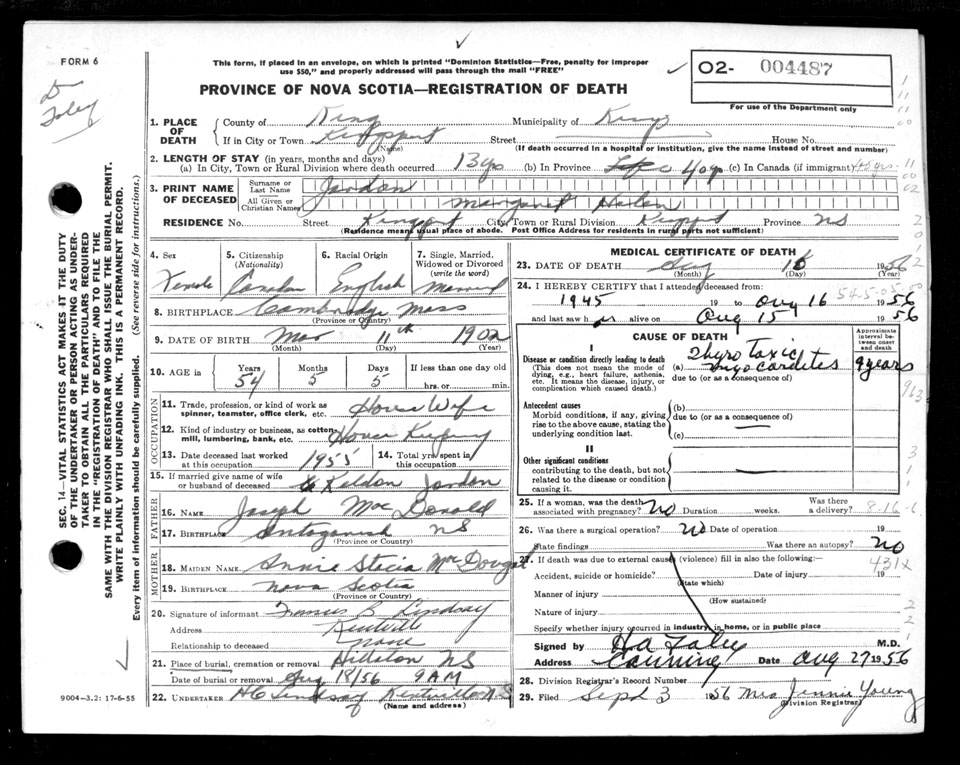 FORM 6
Dr
Foley
This form, if placed in an envelope, on which is printed "Dominion Statistics—Free, penalty for improper
use $50," and properly addressed will pass through the mail "FREE"
PROVINCE OF NOVA SCOTIA—REGISTRATION OF DEATH
O2- 004487
For use of the Department only
1. PLACE OF DEATH
County of Kings Municipality of Kings
If in City or Town Kingsport Street House No.
(Name) (If death occurred in a hospital or institution, give the name instead of street and number)
2. LENGTH OF STAY (in years, months and days)
(a) In City, Town or Rural Division where death occurred 13 yrs (b) In Province 40 yr (c) In Canada (if immigrant) 45 yrs.
3. PRINT NAME OF DECEASED
Surname or Last Name Jordan
All Given or Christian Names Margaret Helen
RESIDENCE No. Street Kingsport City, Town or Rural Division Kingsport Province NS
(Residence means usual place of abode. Post Office Address for residents in rural parts not sufficient)
SEC. 14—VITAL STATISTICS ACT MAKES IT THE DUTY
OF THE UNDERTAKER OR PERSON ACTING AS UNDER-
TAKER TO OBTAIN ALL THE PARTICULARS REQUIRED
IN THE "REGISTRATION OF DEATH" AND TO FILE THE
SAME WITH THE DIVISION REGISTRAR WHO SHALL ISSUE THE BURIAL PERMIT.
WRITE PLAINLY WITH UNFADING INK. THIS IS A PERMANENT RECORD.
Every item of information should be carefully supplied. (See reverse side for instructions.)
4. Sex
Female
5. Citizenship
(Nationality)
Canadian
6. Racial Origin
English
7. Single, Married,
Widowed or Divorced
(write the word)
Married
8. BIRTHPLACE Cambridge Mass
(Province or Country)
9. DATE OF BIRTH Mar 11th 1902
(Month) (Day) (Year)
10. AGE in Years Months Days If less than one day old
54 5 5 hrs. or min.
OCCUPATION
11. Trade, profession, or kind of work as
spinner, teamster, office clerk, etc. House Wife
12. Kind of industry or business, as cotton-
mill, lumbering, bank, etc. House Keeping
13. Date deceased last worked
at this occupation 1955
14. Total yrs. spent in
this occupation
15. If married give name of wife
or husband of deceased Keldon Jordan
FATHER
16. NAME Joseph MacDonald
17. BIRTHPLACE Antoganish NS
(Province or Country)
MOTHER
18. MAIDEN NAME Annie Stecia McDougal
19. BIRTHPLACE Nova Scotia
(Province or Country)
20. Signature of informant Francis B Lindsay
Address Kentville
Relationship to deceased none
21. Place of burial, cremation or removal Hillaton NS
Date of burial or removal Aug 18/56 9 AM
22. UNDERTAKER HC Lindsay Kentville N.S
(Name and address)
9004-3.2: 17-6-55
MEDICAL CERTIFICATE OF DEATH
23. DATE OF DEATH Aug 16 1956
(Month) (Day) (Year)
24. I HEREBY CERTIFY that I attended deceased from
1945 19 to Aug 16 1956
and last saw her alive on Aug 15 1956
CAUSE OF DEATH
Approximate interval between onset and death
I
Disease or condition directly leading to death
(This does not mean the mode of
dying, e.g., heart failure, asthenia,
etc. It means the disease, injury, or
complication which caused death.)
(a) Thyro Toxic Myocarditis 9 years
due to (or as a consequence of)
963
Antecedent causes
Morbid conditions, if any, giving
rise to the above cause, stating the
underlying condition last.
(b)
due to (or as a consequence of)
(c)
II
Other significant conditions
contributing to the death, but not
related to the disease or condition
causing it.
25. If a woman, was the death
associated with pregnancy? No Duration weeks. Was there
a delivery? 8-16-6
26. Was there a surgical operation? No Date of operation 19
State findings Was there an autopsy? No
27. If death was due to external causes (violence) fill in also the following:— 431x
Accident, suicide or homicide? Date of injury 19
(State which)
Manner of injury
(How sustained)
Nature of injury
Specify whether injury occurred in industry, in home, or in public place
Signed by H.A Foley M.D.
Address Canning Date Aug 27 1956
28. Division Registrar's Record Number
29. Filed Sept 3 1956 Mrs Jennie Young
(Division Registrar)